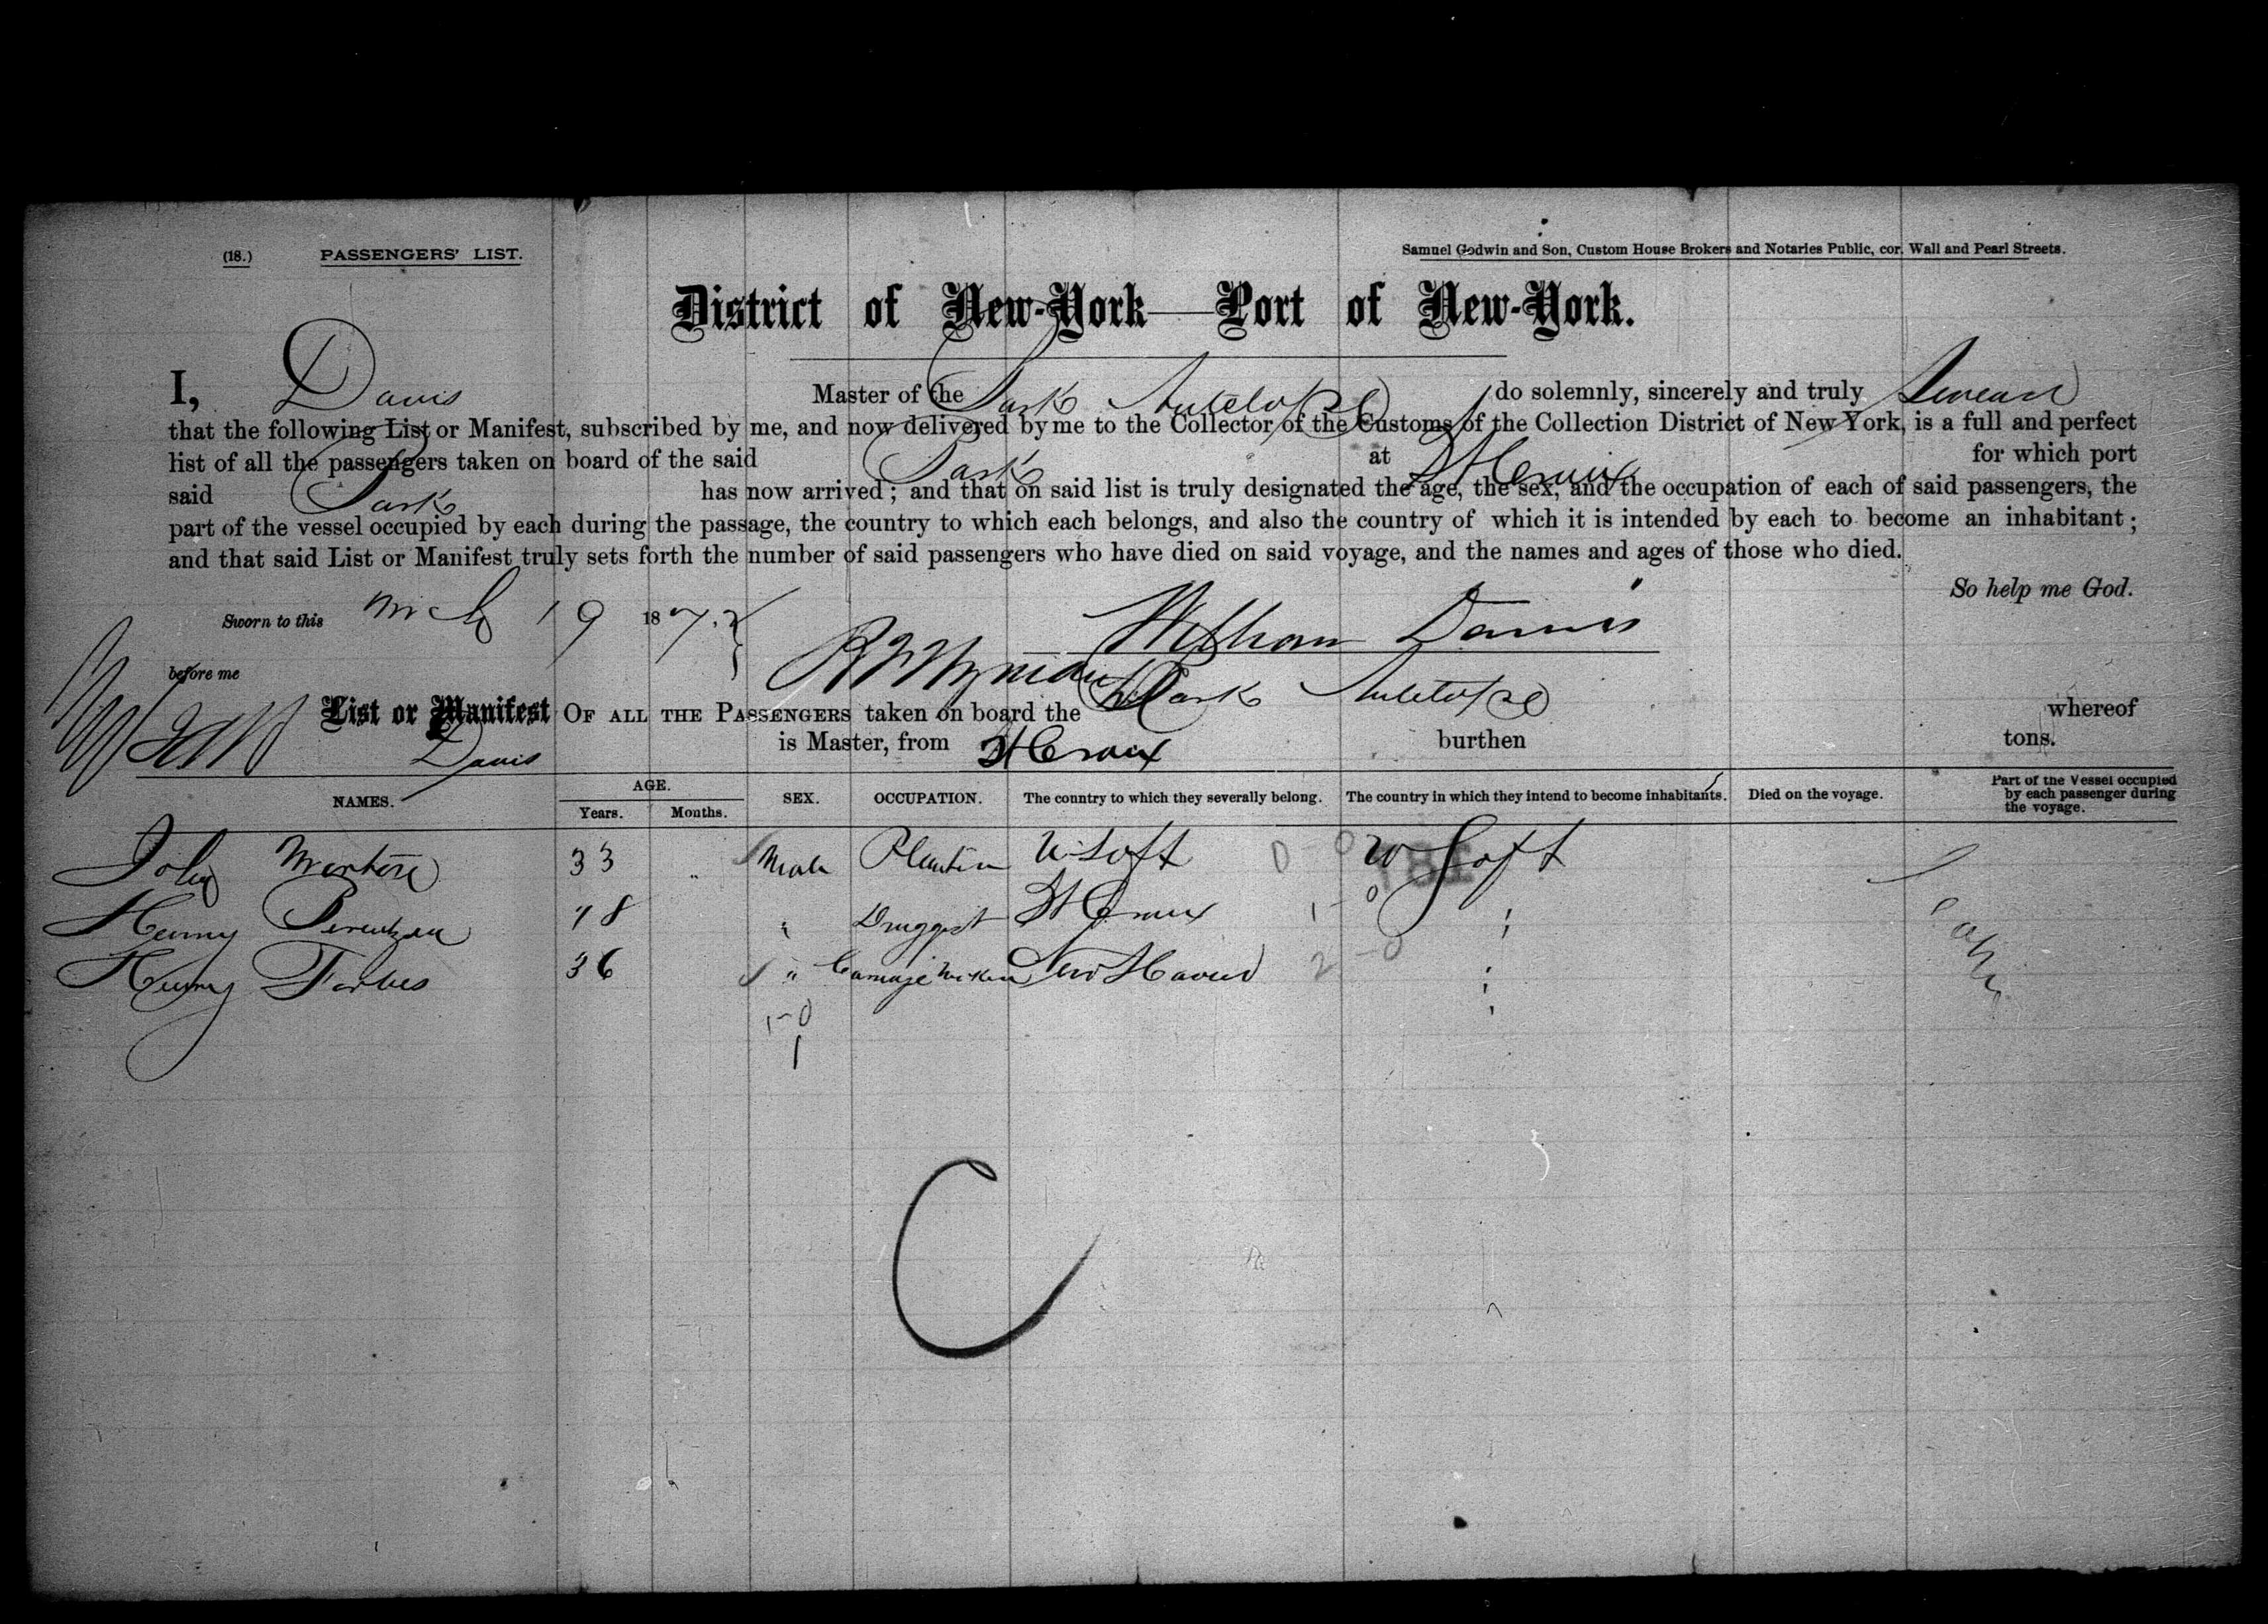 (18.) PASSENGERS' LIST. Samuel Godwin and Son, Custom House Brokers and Notaries Public, cor. Wall and Pearl Streets.
District of New-York—Port of New-York.
I, Davis Master of the Bark Antelope do solemnly, sincerely and truly Swear
that the following List or Manifest, subscribed by me, and now delivered by me to the Collector of the Customs of the Collection District of New York, is a full and perfect
list of all the passengers taken on board of the said Bark at St Croix for which port
said Bark has now arrived; and that on said list is truly designated the age, the sex, and the occupation of each of said passengers, the
part of the vessel occupied by each during the passage, the country to which each belongs, and also the country of which it is intended by each to become an inhabitant;
and that said List or Manifest truly sets forth the number of said passengers who have died on said voyage, and the names and ages of those who died.
So help me God.
Sworn to this Mch 19 1872
William Davis
before me
List or Manifest OF ALL THE PASSENGERS taken on board the Bark Antelope whereof
Davis is Master, from St Croix burthen tons.
NAMES. AGE. Years. Months. SEX. OCCUPATION. The country to which they severally belong. The country in which they intend to become inhabitants. Died on the voyage. Part of the Vessel occupied by each passenger during the voyage.
John 33 " Male
Henry 18 " Druggist St Croix 1-0 "
Henry Forbes 36 " New Haven 2-0 "
1-0
1
C